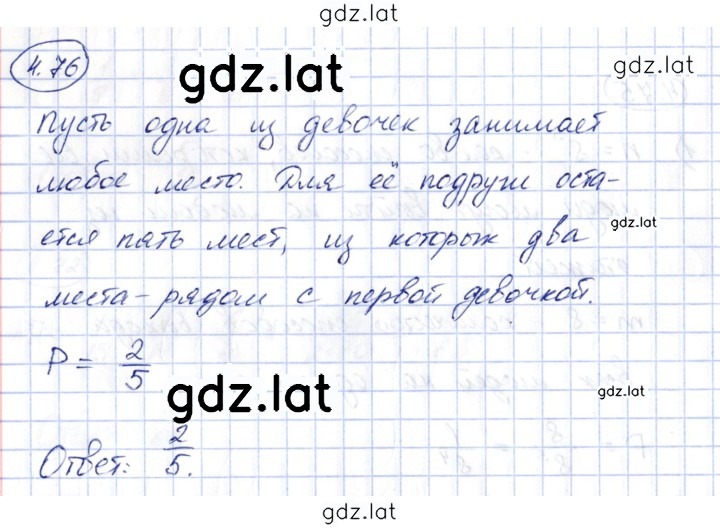 gdz.lat
4.76
gdz.lat
gdz.lat
Пусть одна из девочек занимает
любое место. Для её подруги оста-
ется пять мест, из которых два
gdz.lat
места - рядом с первой девочкой.
P = 2/5
gdz.lat
gdz.lat
Ответ: 2/5.
gdz.lat